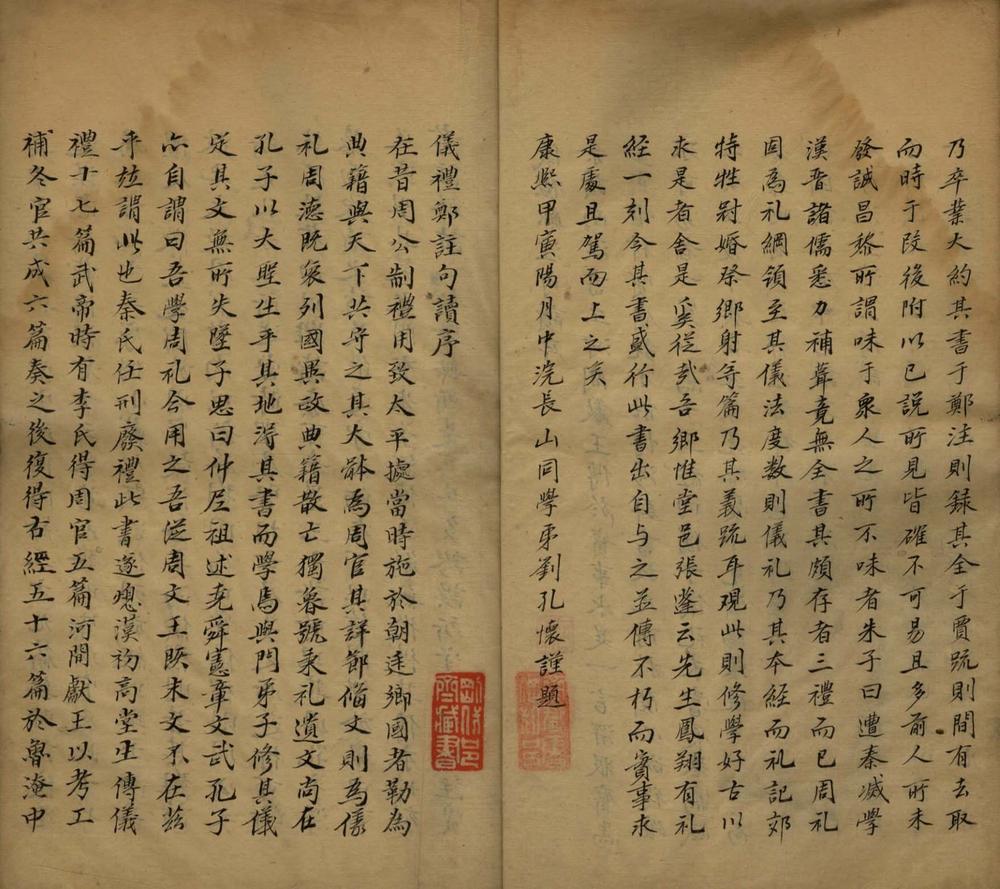 乃卒業大約其書于鄭注則録其全于賈䟽則間有去取
而時于段後附以已說所見皆確不可易且多前人所未
發誠昌黎所謂味于衆人之所不味者朱子曰遭秦滅學
漢晉諸儒悉力補葺竟無全書其頗存者三禮而已周礼
固為礼綱領至其儀法度数則儀礼乃其本經而礼記郊
特牲冠婚祭鄉射等篇乃其義䟽耳观此則修學好古以
求是者舍是奚從㢤吾鄉惟堂邑張蓬云先生鳳翔有礼
經一刻今其書盛行此書出自与之並傳不朽而實事求
是處且駕而上之矣
康熙甲寅陽月中浣長山同學弟劉孔懷謹題
儀禮鄭註句讀序
在昔周公制禮用致太平據當時施於朝廷鄉國者勒為
典籍與天下共守之其大體為周官其詳節偹文則為儀
礼周德既衰列國異政典籍散亡獨魯號秉礼遺文尚在
孔子以大聖生乎其地得其書而學焉與門弟子修其儀
定其文無所失墜子思曰仲尼祖述堯舜憲章文武孔子
亦自謂曰吾學周礼今用之吾從周文王既末文不在茲
乎茲謂此也秦氏任刑廢禮此書遂熄漢初高堂生傳儀
禮十七篇武帝時有李氏得周官五篇河間獻王以考工
補冬官共成六篇奏之後復得古經五十六篇於魯淹中
齊藏書